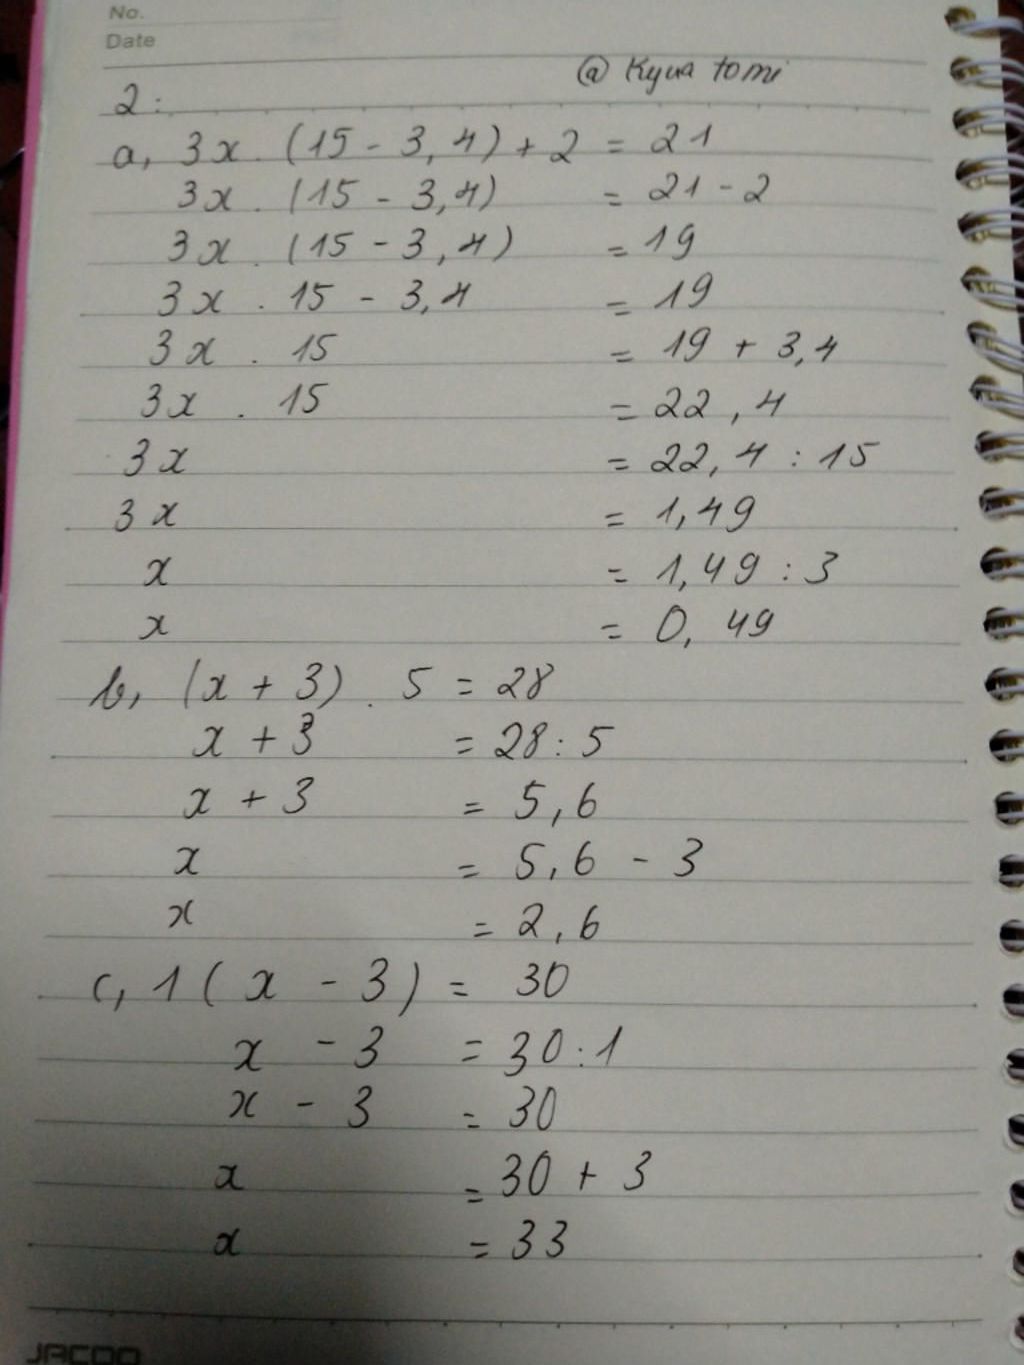 No.
Date
@ Kyua tomi
2:
a, 3x . (15 - 3,4) + 2 = 21
3x . (15 - 3,4) = 21 - 2
3x . (15 - 3,4) = 19
3x . 15 - 3,4 = 19
3x . 15 = 19 + 3,4
3x . 15 = 22,4
3x = 22,4 : 15
3x = 1,49
x = 1,49 : 3
x = 0,49
b, (x + 3) . 5 = 28
x + 3 = 28 : 5
x + 3 = 5,6
x = 5,6 - 3
x = 2,6
c, 1 (x - 3) = 30
x - 3 = 30 : 1
x - 3 = 30
x = 30 + 3
x = 33